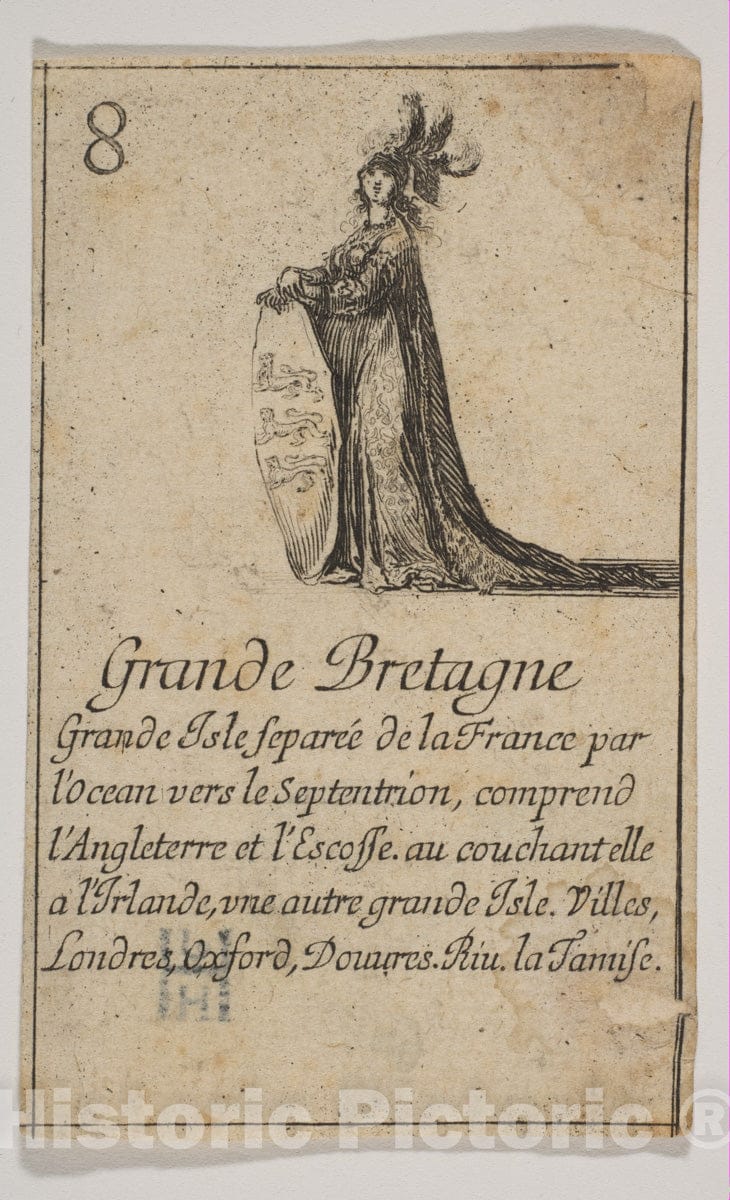 8
Grande Bretagne
Grande Isle ſepareé de la France par
l'Ocean vers le Septentrion, comprend
l'Angleterre et l'Escoſſe. au couchant elle
a l'Irlande, vne autre grande Isle. Villes,
Londres, Oxford, Douures. Riu. la Tamiſe.
Historic Pictoric ®